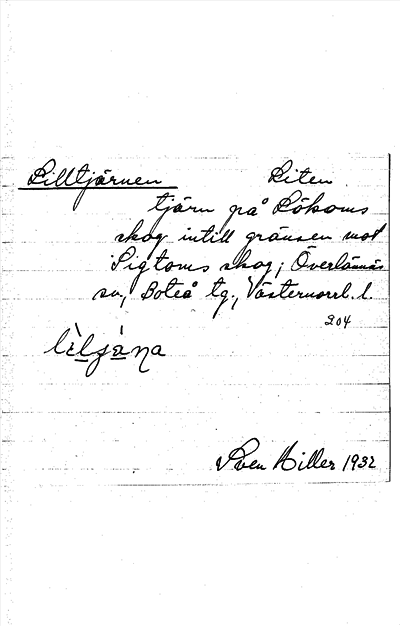 Lilltjärnen Liten
tjärn på Lökoms
skog intill gränsen mot
Sigtoms skog; Överlännäs
sn, Boteå tg., Västernorrl. l.
204
lìljàna
Sven Hiller 1932